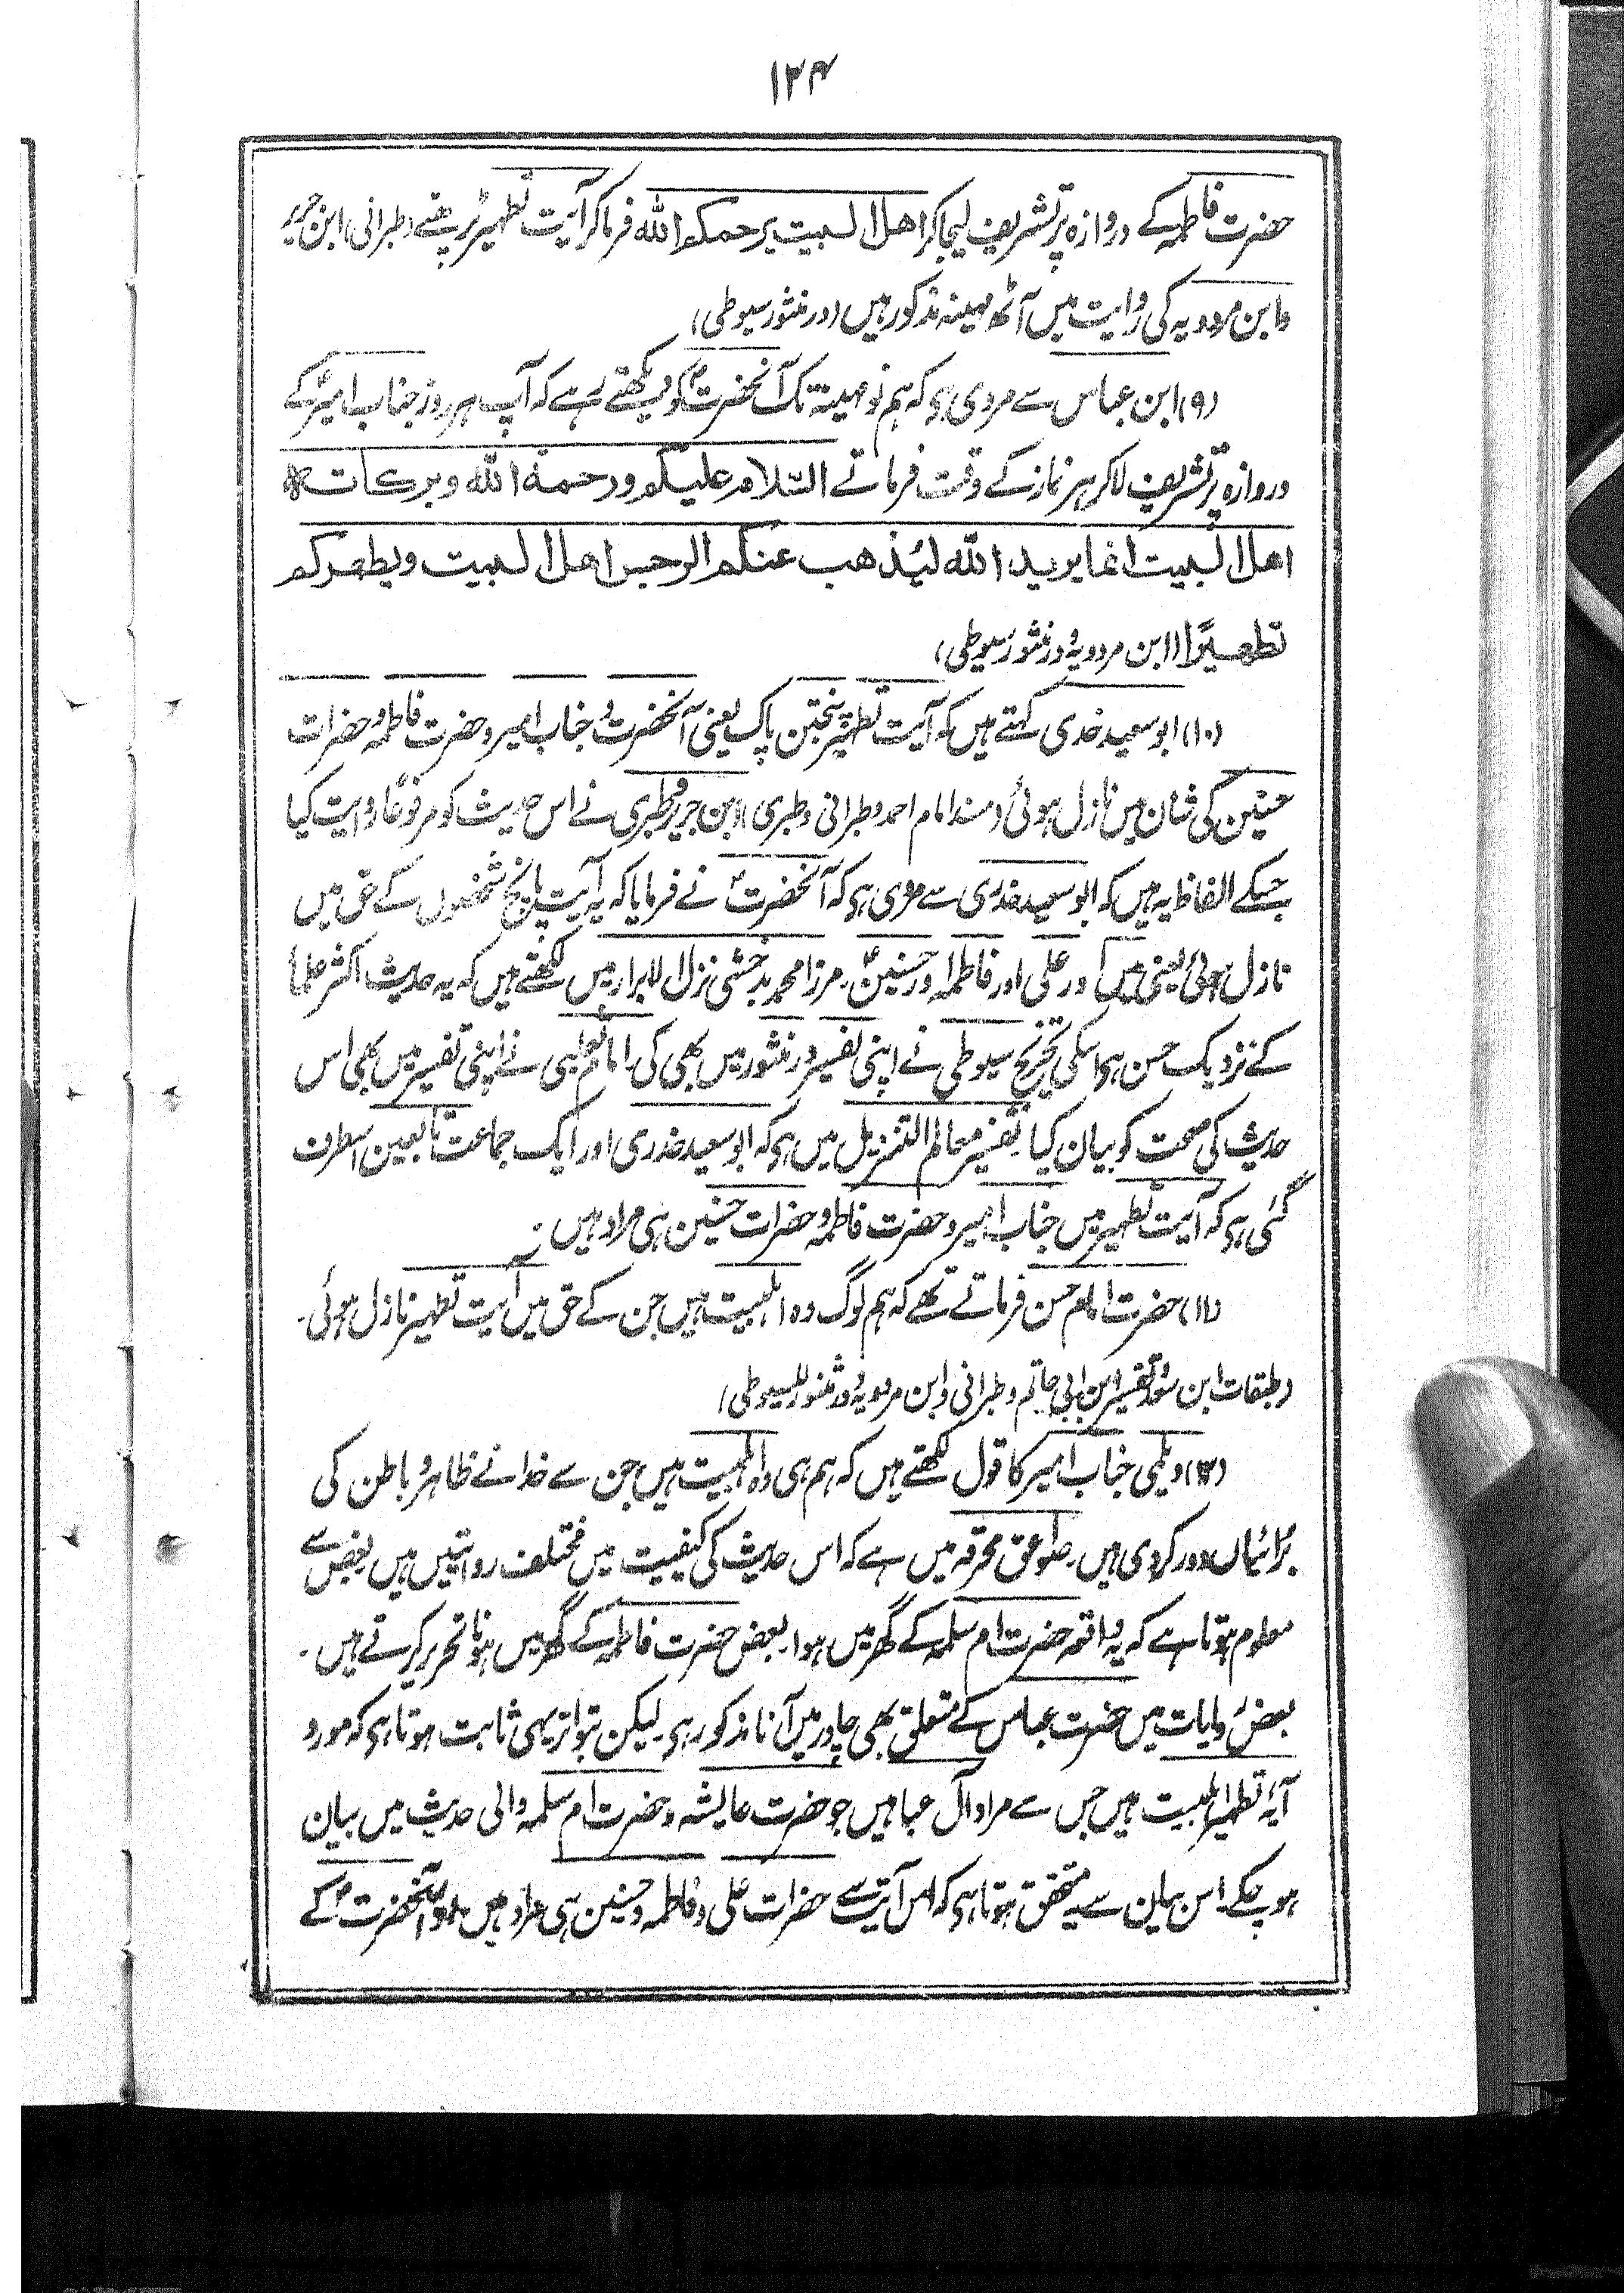 ۱۲۴
حضرت فاطمہ کے دروازہ پر تشریف لیجاکر اھل البیت یرحمکم اللہ فرماکر آیت تطہیر پڑہتے (طبرانی) ابن جریر
وابن مردویہ کی روایت میں آٹھ مہینہ مذکور ہیں (درمنثور سیوطی)
(۹) ابن عباس سے مروی ہی کہ ہم نو مہینہ تک آنحضرتؐ کو دیکھتے رہے کہ آپ ہر روز جناب امیرؑ کے
دروازہ پر تشریف لاکر ہر نماز کے وقت فرماتے السّلام علیکم ورحمۃ اللہ وبرکاتہ
اھل البیت انما یرید اللہ لیُذھب عنکم الرجس اھل البیت ویطھرکم
تطھیرًا (ابن مردویہ و درمنثور سیوطی)
(۱۰) ابوسعید خدری کہتے ہیں کہ آیت تطہیر پنجتن پاک یعنی آنحضرت و جناب امیر و حضرت فاطمہ و حضرات
حسنین کی شان میں نازل ہوئی (مسند امام احمد و طبرانی و طبری) ابن جریر و طبری نے اس حدیث کو مرفوعًا روایت کیا
جسکے الفاظ یہ ہیں کہ ابوسعید خدری سے مروی ہی کہ آنحضرتؐ نے فرمایا کہ یہ آیت پانچ شخصوں کے حق میں
نازل ہوئی یعنی میں اور علی اور فاطمہ اور حسنینؑ۔ مرزا محمد بدخشی نزل الابرار میں لکھتے ہیں کہ یہ حدیث اکثر علماء
کے نزدیک حسن ہی اسکی تخریج سیوطی نے اپنی تفسیر درمنثور میں بھی کی۔ امام ثعلبی نے اپنی تفسیر میں بھی اس
حدیث کی صحت کو بیان کیا۔ تفسیر معالم التنزیل میں ہی کہ ابوسعید خدری اور ایک جماعت تابعین اسطرف
گئی ہی کہ آیت تطہیر میں جناب امیر و حضرت فاطمہ و حضرات حسنین ہی مراد ہیں۔
(۱۱) حضرت امام حسن فرماتے تھے کہ ہم لوگ وہ اہلبیت ہیں جن کے حق میں آیت تطہیر نازل ہوئی۔
(طبقات ابن سعد و تفسیر ابن ابی حاتم و طبرانی و ابن مردویہ و درمنثور للسیوطی)
(۱۲) دیلمی جناب امیر کا قول لکھتے ہیں کہ ہم ہی وہ اہلبیت ہیں جن سے خدا نے ظاہر و باطن کی
برائیاں دور کردی ہیں۔ صواعق محرقہ میں ہے کہ اس حدیث کی کیفیت میں مختلف روایتیں ہیں بعض سے
معلوم ہوتا ہے کہ یہ واقعہ حضرت ام سلمہ کے گھر میں ہوا۔ بعض حضرت فاطمہ کے گھر میں ہونا تحریر کرتے ہیں۔
بعض روایات میں حضرت عباس کے متعلق بھی چادر میں آنا مذکور ہی۔ لیکن بتواتر یہی ثابت ہوتا ہی کہ مورد
آیۂ تطہیر اہلبیت ہیں جس سے مراد آل عبا ہیں جو حضرت عایشہ و حضرت ام سلمہ والی حدیث میں بیان
ہو چکے۔ اس بیان سے یہ متحقق ہوتا ہی کہ اس آیت سے حضرات علی و فاطمہ و حسنین ہی مراد ہیں آنحضرتؐ کے